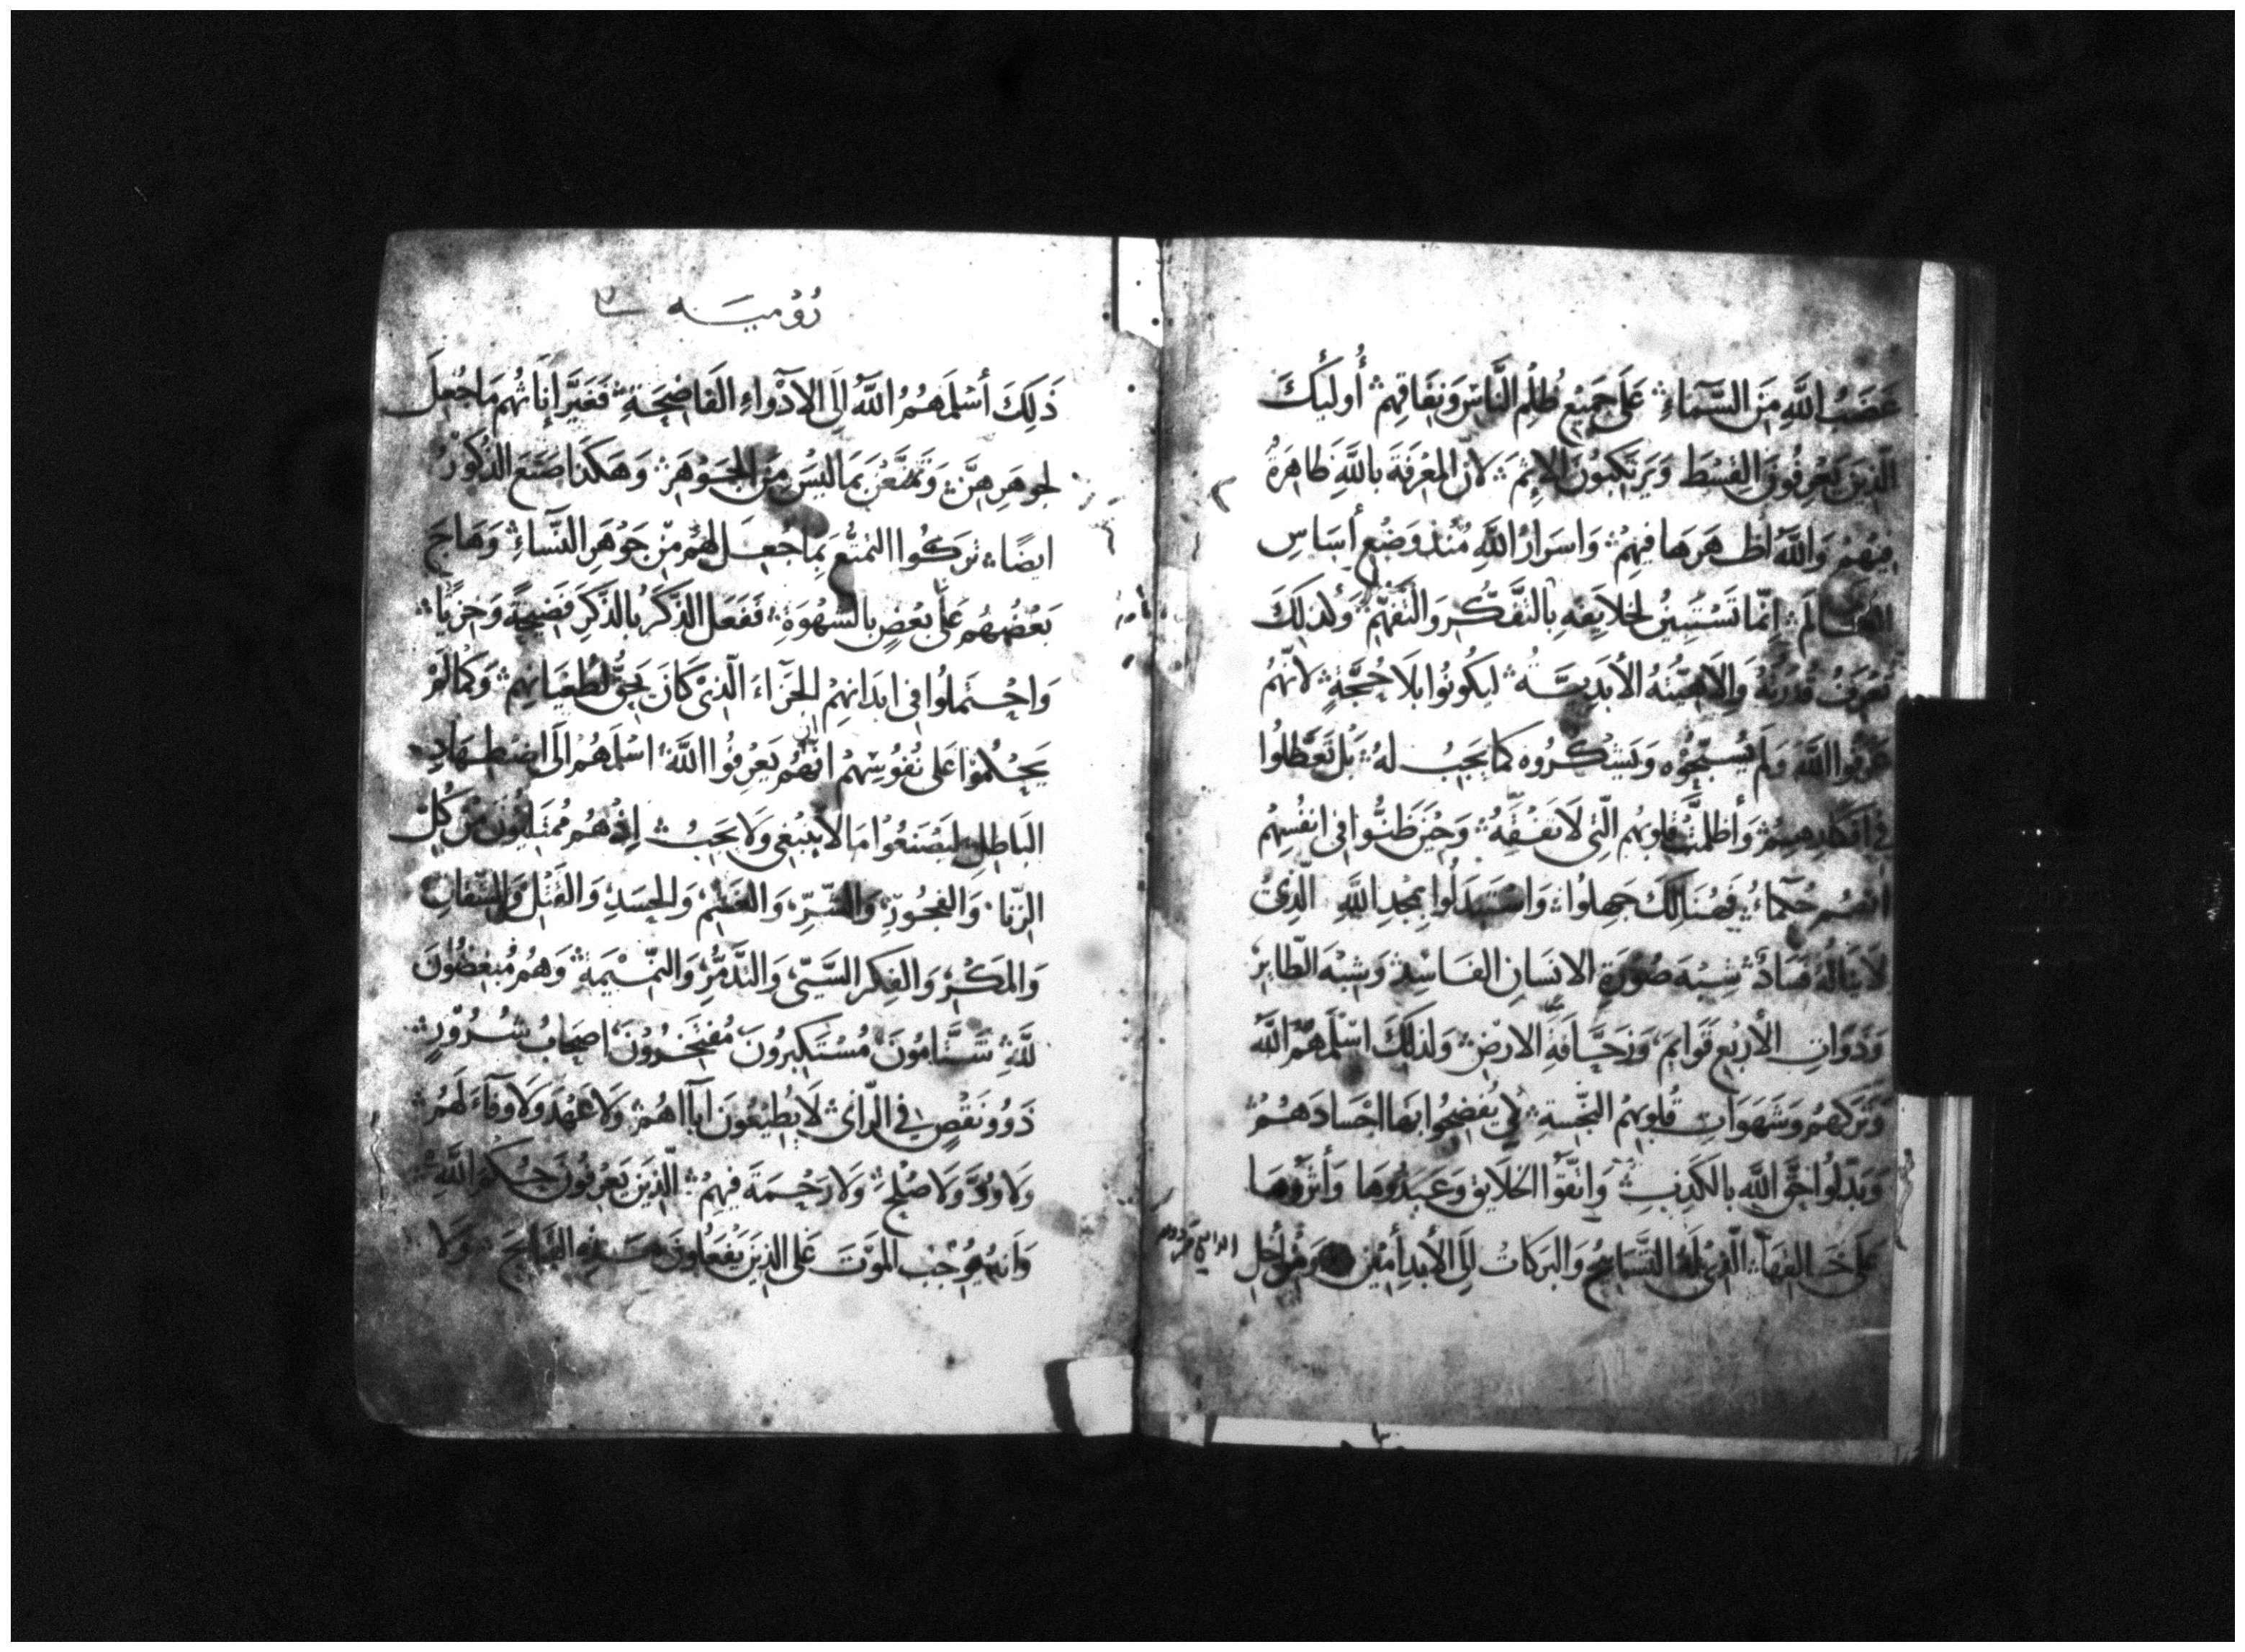 غَضَبُ اللَّهِ مِنَ السَّمَاءِ عَلَى جَمِيْعِ ظُلْمِ النَّاسِ وَنِفَاقِهِمْ أُولئِكَ
الَّذِينَ يَعْرِفُونَ القِسْطَ وَيَرْتَكِبُونَ الإِثْمَ لأنّ المَعْرِفَةَ باللَّهِ ظَاهِرَةٌ
فِيْهِمْ وَاللَّهُ أَظْهَرَهَا فِيهِمْ وَاسْرَارُ اللَّهِ مُنْذُ وَضْعِ أَسَاسِ
العَالَمِ إِنّمَا تَسْتَبِينُ لخَلايِقِهِ بِالتَّفَكُّرِ وَالتَّفَهُّمْ وَكَذلِكَ
تُعْرَفُ قُدْرَتُهُ وَإِلَاهِيَّتُهُ الأَبَدِيَّةُ لِيَكُونُوا بِلَا حُجَّةٍ لأَنَّهُمْ
عَرَفُوا اللَّهَ وَلَمْ يُسَبِّحُوْهُ وَيَشْكُرُوهُ كمَا يَجِبُ لَهُ بَلْ تَعَطَّلُوا
فِي افْكَارِهِمْ وَأَظْلَمَتْ قلوبُهم الّتِي لَا تَفْقَهُ وَحِيْنَ ظَنُّوا فِي انْفُسِهِمْ
انَّهُمْ حُكَمَاءُ فَهُنَالِكَ جَهِلُوا وَاسْتَبْدَلُوا بِمَجْدِ اللَّهِ الّذِي
لَا يَنَالُهُ فَسَادٌ شِبْهَ صُوْرَةِ الانْسَانِ الفَاسِدْ وَشِبْهَ الطَّايِرْ
وَذَوَاتِ الأَرْبَعِ قَوَايِمْ وَزَحَّافَةِ الارْضِ وَلذلِكَ اسْلَمَهُمُ اللَّهُ
وَتَرَكَهُمْ وَشَهَوَاتِ قُلُوبِهِمُ النَّجِسَةِ لِكَي يُفْضِحُوا بهَا اجْسَادَهُمْ
وَبَدَّلُوا حَقَّ اللَّهِ بالكَذِبِ وَاتَّقَوُا الخَلَايِقَ وَعَبَدُوهَا وَأَثَرُوهَا
عَلَى خَالِقِهَا الّذِي لَهُ التَّسَابِيحُ وَالبَرَكَاتُ إِلَى الأَبَدِ أَمِيْنَ وَمِنْ أَجْلِ
رُوْميَه
ذَلِكَ أَسْلَمَهُمُ اللَّهُ إِلَى الأَدْوَاءِ الفَاضِحَةِ فَغَيَّرَ إِنَاثُهُمْ مَا جُعِلَ
لجَوهَرِهِنَّ وَتَمَتَّعْنَ بِمَا ليْسَ مِنَ الجَوْهَرْ وَهَكَذَا صَنَعَ الذُّكُوْرُ
ايضًا تَرَكُوا التمتُّعَ بِمَا جُعِلَ لهُمْ مِنْ جَوْهَرِ النِّسَاءِ وَهَاجَ
بَعْضُهُم عَلَى بَعْضٍ بالشَّهْوَةِ فَفَعَلَ الذَّكَرُ بالذَّكَرِ فَضِيْحَةً وَخِزْيًا
وَاحْتَمَلُوا فِي ابْدَانِهِمْ الجَزَاءَ الّذِي كَانَ يَحِقُّ لطُغْيَانِهِمْ وَكَمَا لَمْ
يَحْكُمُوْا عَلَى نُفُوْسِهِمْ انَّهُمْ يَعْرِفُوا اللَّهَ اسْلَمَهُمْ إِلَى اضْطِهَادِ
البَاطِلِ لِيَصْنَعُوا مَا لَا يَنْبَغِي وَلَا يَجِبُ إِذْ هُمْ مُمْتَلِئُونَ مِنْ كُلِّ
الزِّنَا وَالفجُورِ وَالشَّرِّ وَالغَشْمِ وَالحَسَدِ وَالقَتْلِ وَالشِّقَاقِ
وَالمَكْرِ وَالفِكْرِ السَّيّئ وَالتَّذَمُّرِ وَالنَّمِيْمَةِ وَهُمْ مُبْغِضُوْنَ
للَّهِ شَتَّامُونَ مُسْتَكْبِرُونَ مُفْتَخِرُوْنَ اصْحَابُ شُرُوْرٍ
ذَوُو نَقْصٍ فِي الرَّأيِ لَا يُطِيْعُونَ آبَاءَهُمْ وَلَا عَهْدَ وَلَا وَفَاءَ لَهُمْ
وَلَا وُدَّ وَلَا صُلْحَ وَلَا رَحْمَةَ فِيهِمْ الّذِيْنَ يَعْرِفُوْنَ حُكْمَ اللَّهِ
وَأنَّهُ يُوْجِبُ المَوْتَ عَلَى الّذِينَ يَفْعَلُونَ هَذِهِ القَبَايِحَ وَلَا